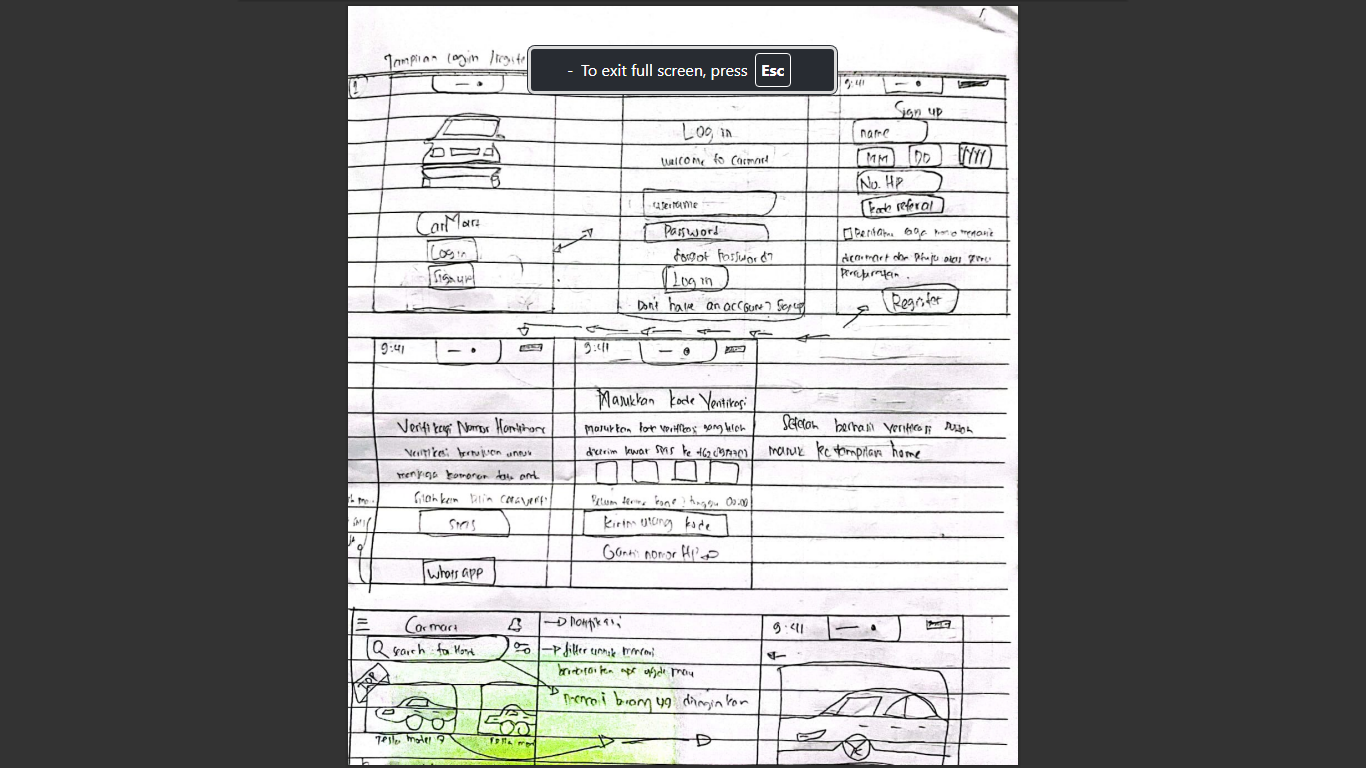 Tampilan Login /registe
- To exit full screen, press Esc
1
CarMart
Login
Sign up
Log in
welcome to Carmart
username
Password
forgot Password?
Log in
Don't have an account? Sign up
9:41
Sign up
name
MM DD YYYY
No. HP
kode referal
Register
9:41
Verifikasi Nomor Handphone
verifikasi bertujuan untuk
menjaga keamanan data anda
Silahkan pilih cara verif
SMS
Whatsapp
9:41
Masukkan kode Verifikasi
masukkan kode verifikasi yang telah
dikirim lewat SMS ke +62
Belum terima kode? tunggu 00.00
Kirim ulang kode
Ganti nomor HP
Setelah berhasil verifikasi
masuk ke tampilan home
Carmart
Search for Hond
TOP
Tesla model
Tesla mod
Notifikasi
filter untuk mencari
berdasarkan apa
mencari barang yg diinginkan
9:41